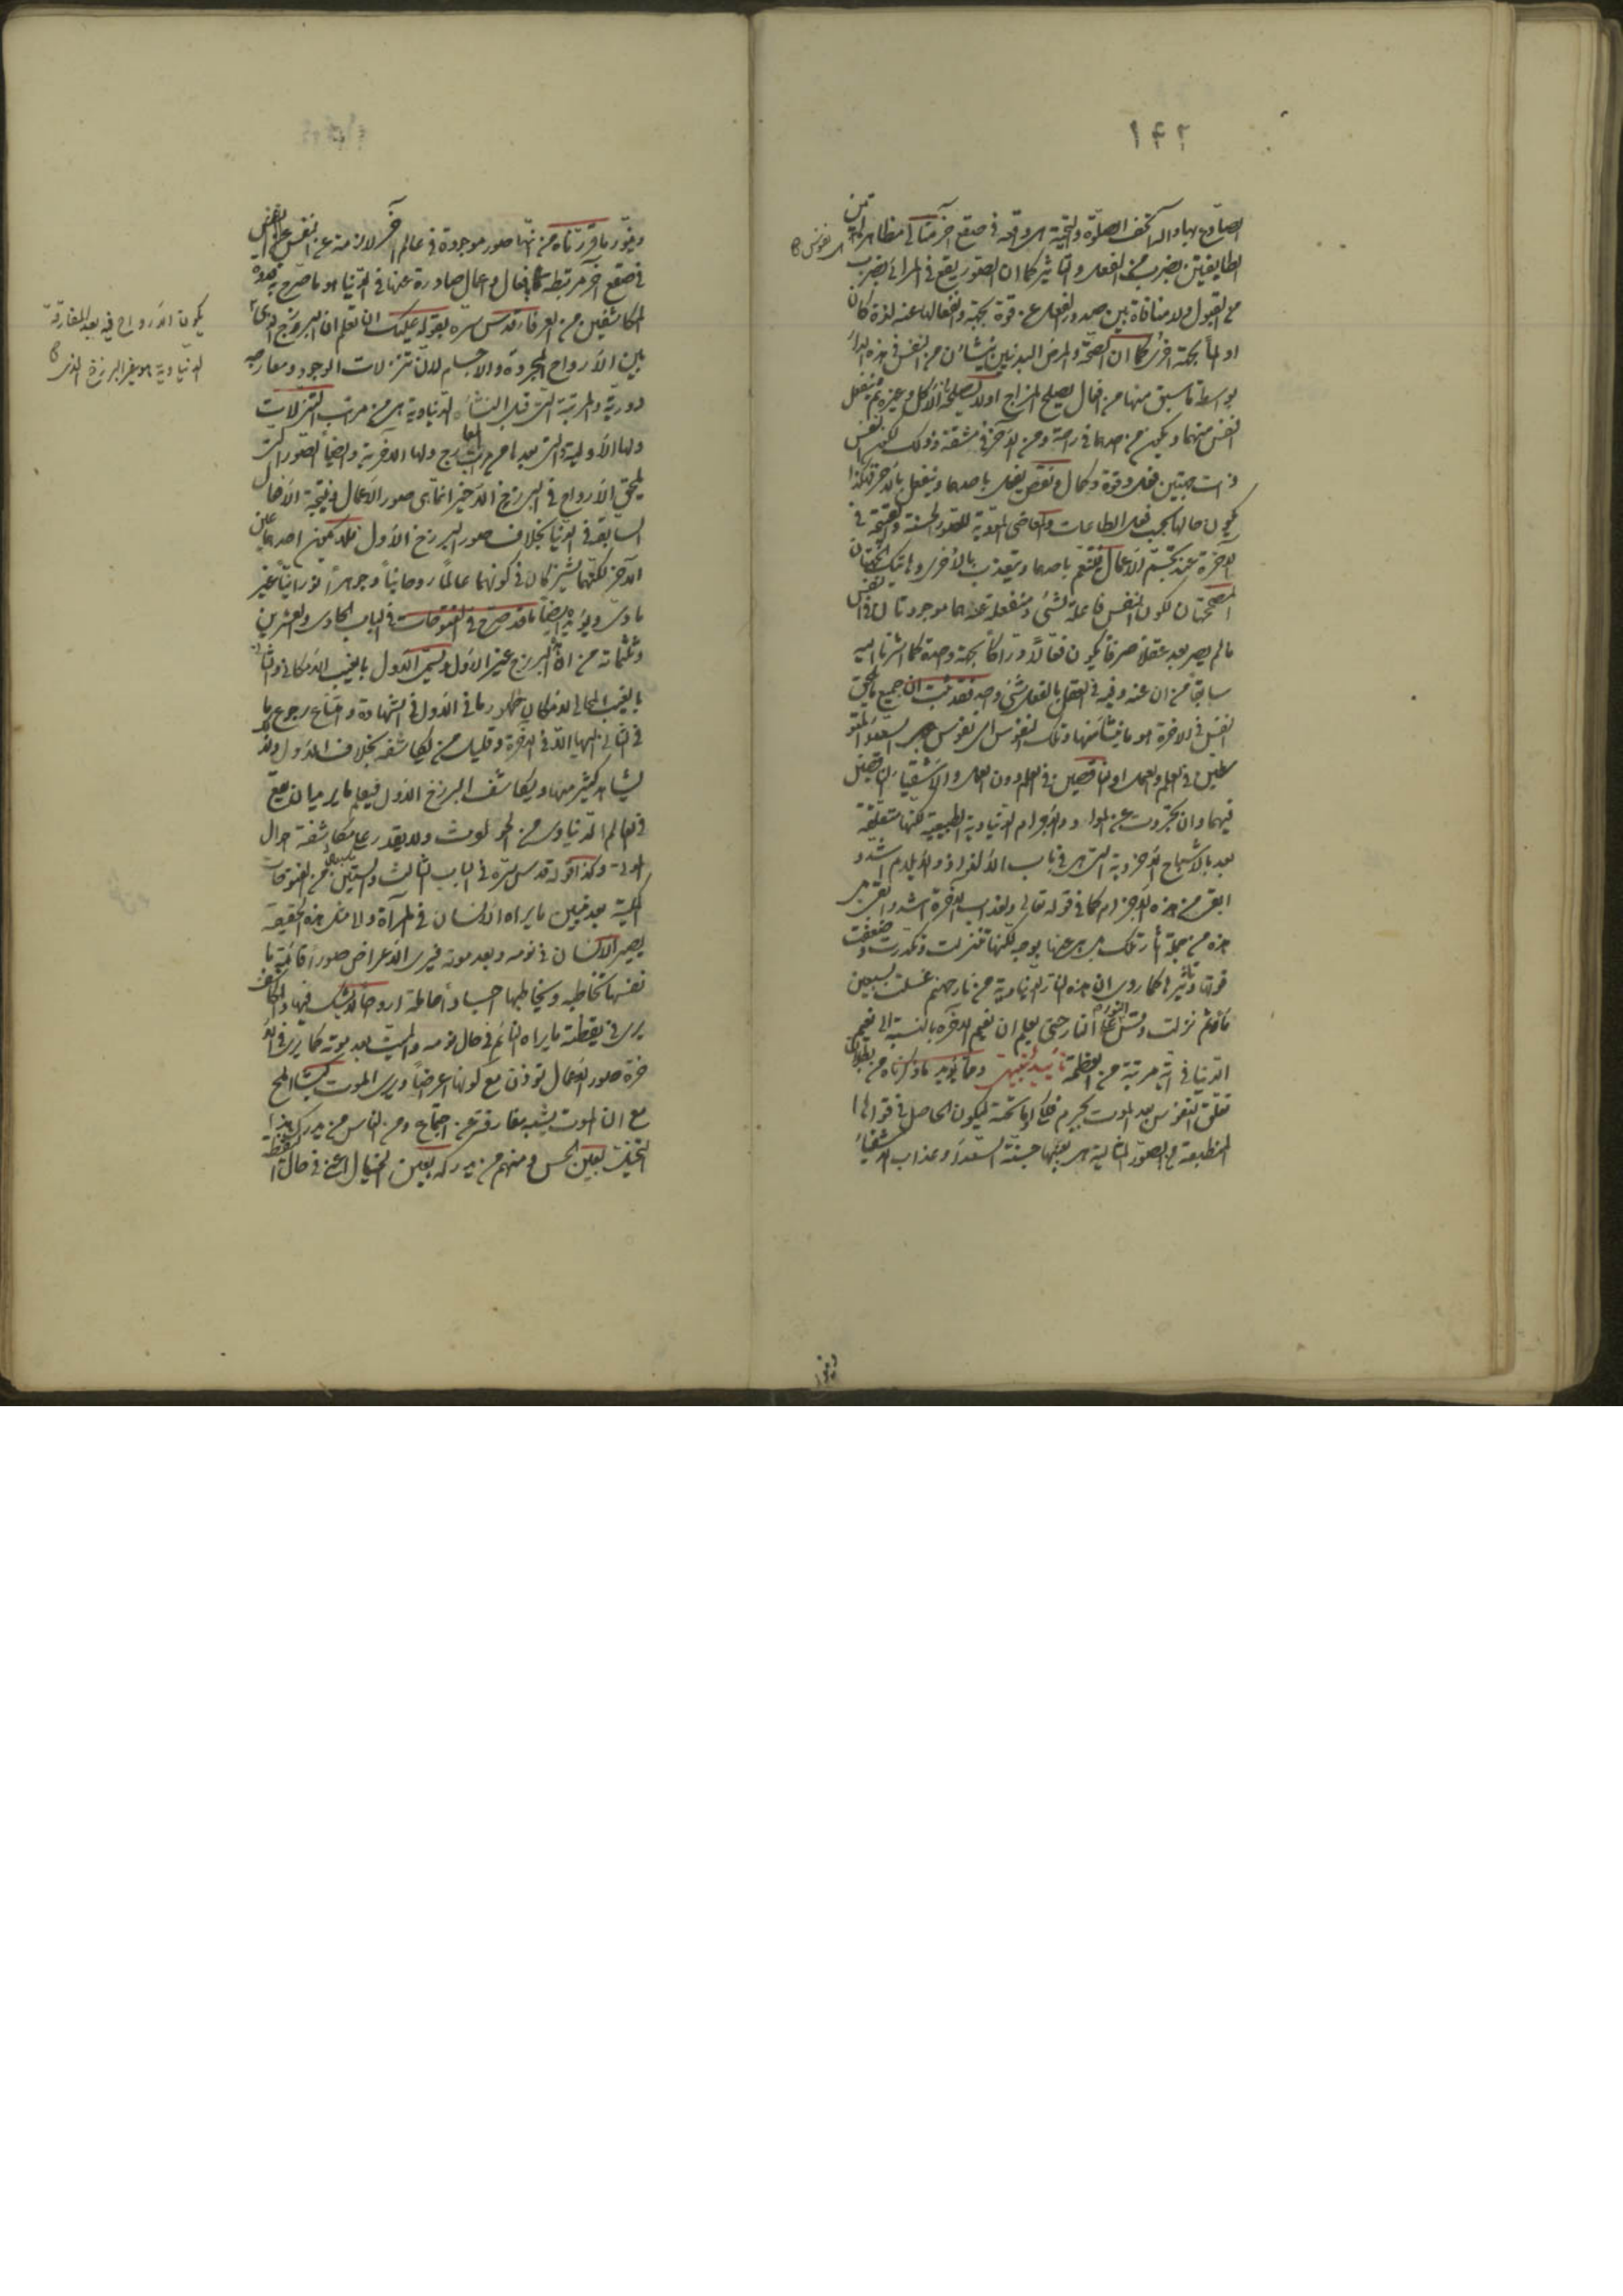 ١٤٢
الصادع بها وآله آلاف الصلوة والتحية هى واقعة فى صقع آخر مثالى مظاهرها
هى نفوس
الطايفتين بضرب من الفعل والتاثير كما ان الصور يقع فى المرائى بضرب
من القبول ولا منافاة بين صدور الفعل عن قوة بجهة وانفعالها عنه لذة كان
او الماً بجهة اخرى كما ان الصحة والمرض البدنيين ينشأن من النفس فى هذه الدار
بواسطة ما سبق منها من افعال يصلح المزاج اولا يصلحه كالأكل وغيره ثم ينفعل
النفس منهما ويكون من احدهما فى راحة ومن الآخر فى مشقة وذلك لكون النفس
ذات جهتين فعل وقوة وكمال ونقص يفعل باحدهما وينفعل بالآخر فهكذا
يكون حالها بحسب فعل الطاعات والمعاصى المؤدية للصور الحسنة والقبيحة فى
الآخرة عند تجسّم الأعمال فتتنعم باحدهما وتتعذب بالأخرى وهاتيك الجهتان
المصححتان لكون النفس فاعلة لشئ ومنفعلة عنه هما موجودتان فى النفس
ما لم يصر بعد عقلا صرفاً يكون فعالاً ودراكاً بجهة وحدة كما اشرنا اليه
سابقاً من ان عنه وفيه فى العقل بالفعل شئ واحد فقد ثبت ان جميع ما يلحق
النفس فى الاخرة هو ما ينشأ منها وتلك النفوس اى نفوس السعداء المتو
سطين فى العلم والعمل او الناقصين فى العلم دون العمل والاشقياء الناقصين
فيهما وان تجردت عن المواد والاجرام الدنياوية الطبيعية لكنها متعلقة
بعد بالاشباح الاخروية التى هى فى باب الالذاذ والايلام اشد و
ابقى من هذه الاجرام كما فى قوله تعالى ولعذاب الآخرة اشد وابقى بل
هذه من جملة آثار تلك بل هى عينها بوجه لكنها تنزلت وتكدرت وضعفت
قوتها وتأثيرها كما روى ان هذه النار الدنياوية من نار جهنم غسلت بسبعين
ماء ثم نزلت وقس على النار النور حتى يعلم ان نعيم الآخرة بالنسبة الى نعيم
الدنيا فى اية مرتبة من العظمة تأييد تنبيهى ومما يؤيد ما ذكرناه من بطلان
تعلق النفوس بعد الموت بجرم فلكى او ما تحته ليكون الحاصل فى قواها
المنطبعة من الصور المثالية هى بعينها جنة السعداء وعذاب الاشقياء
وينور
وينور ما قررناه من انها صور موجودة فى عالم آخر لازمة عن النفس
فى صقع آخر مرتبطة بافعال واعمال صادرة عنها فى الدنيا هو ما صرح به قدوة
المكاشفين من العرفاء قدس سره بقوله عليك ان تعلم ان البرزخ الذى
يكون الأرواح فيه بعد المفارقة
الدنياوية هو غير البرزخ الذى
بين الأرواح المجردة والاجسام لان تنزلات الوجود ومعارجه
دورية والمرتبة التى قبل النشأة الدنياوية هى من مراتب التنزلات
ولها الأولية والتى بعدها من مراتب المعارج ولها الآخرية وايضاً الصور التى
يلحق الأرواح فى البرزخ الأخير انما هى صور الأعمال ونتيجة الأفعال
السابقة فى الدنيا بخلاف صور البرزخ الأول فلا يكون احدهما عين
الآخر لكنهما يشتركان فى كونهما عالماً روحانياً وجوهراً نورانياً غير
مادى ويؤيده ايضاً ما قد صرح فى الفتوحات فى الباب الحادى والعشرين
وثلثمائة من ان هذا البرزخ غير الأول ويسمى الأول بالغيب الامكانى والثانى
بالغيب المحالى لامكان ظهور ما فى الأول فى الشهادة وامتناع رجوع ما
فى الثانى اليها الا فى الآخرة وقليل من يكاشفه بخلاف الأول ولذلك
يشاهد كثير منا ويكاشف البرزخ الاول فيعلم ما يريد ان يقع
فى العالم الدنياوى من الحوادث ولا يقدر على مكاشفة احوال
الموتى وكذا قوله قدس سره فى الباب الثالث والستين من الفتوحات
المكية بعد تبيين ما يراه الانسان فى المرآة والا مثل هذه الحقيقة
يصير الانسان فى نومه وبعد موته فيرى الأعراض صوراً قائمة
بنفسها تخاطبه ويخاطبها اجساداً حاملة ارواحاً لا يشك فيها والمكاشف
يرى فى يقظته ما يراه النائم فى حال نومه والميت بعد موته كما يرى فى الآ
خرة صور الأعمال توزن مع كونها اعراضاً ويرى الموت كبشاً املح
مع ان الموت نسبة مفارقة عن اجتماع ومن الناس من يدرك هذا
المتخيل بعين الحس ومنهم من يدركه بعين الخيال اعنى فى حال اليقظة